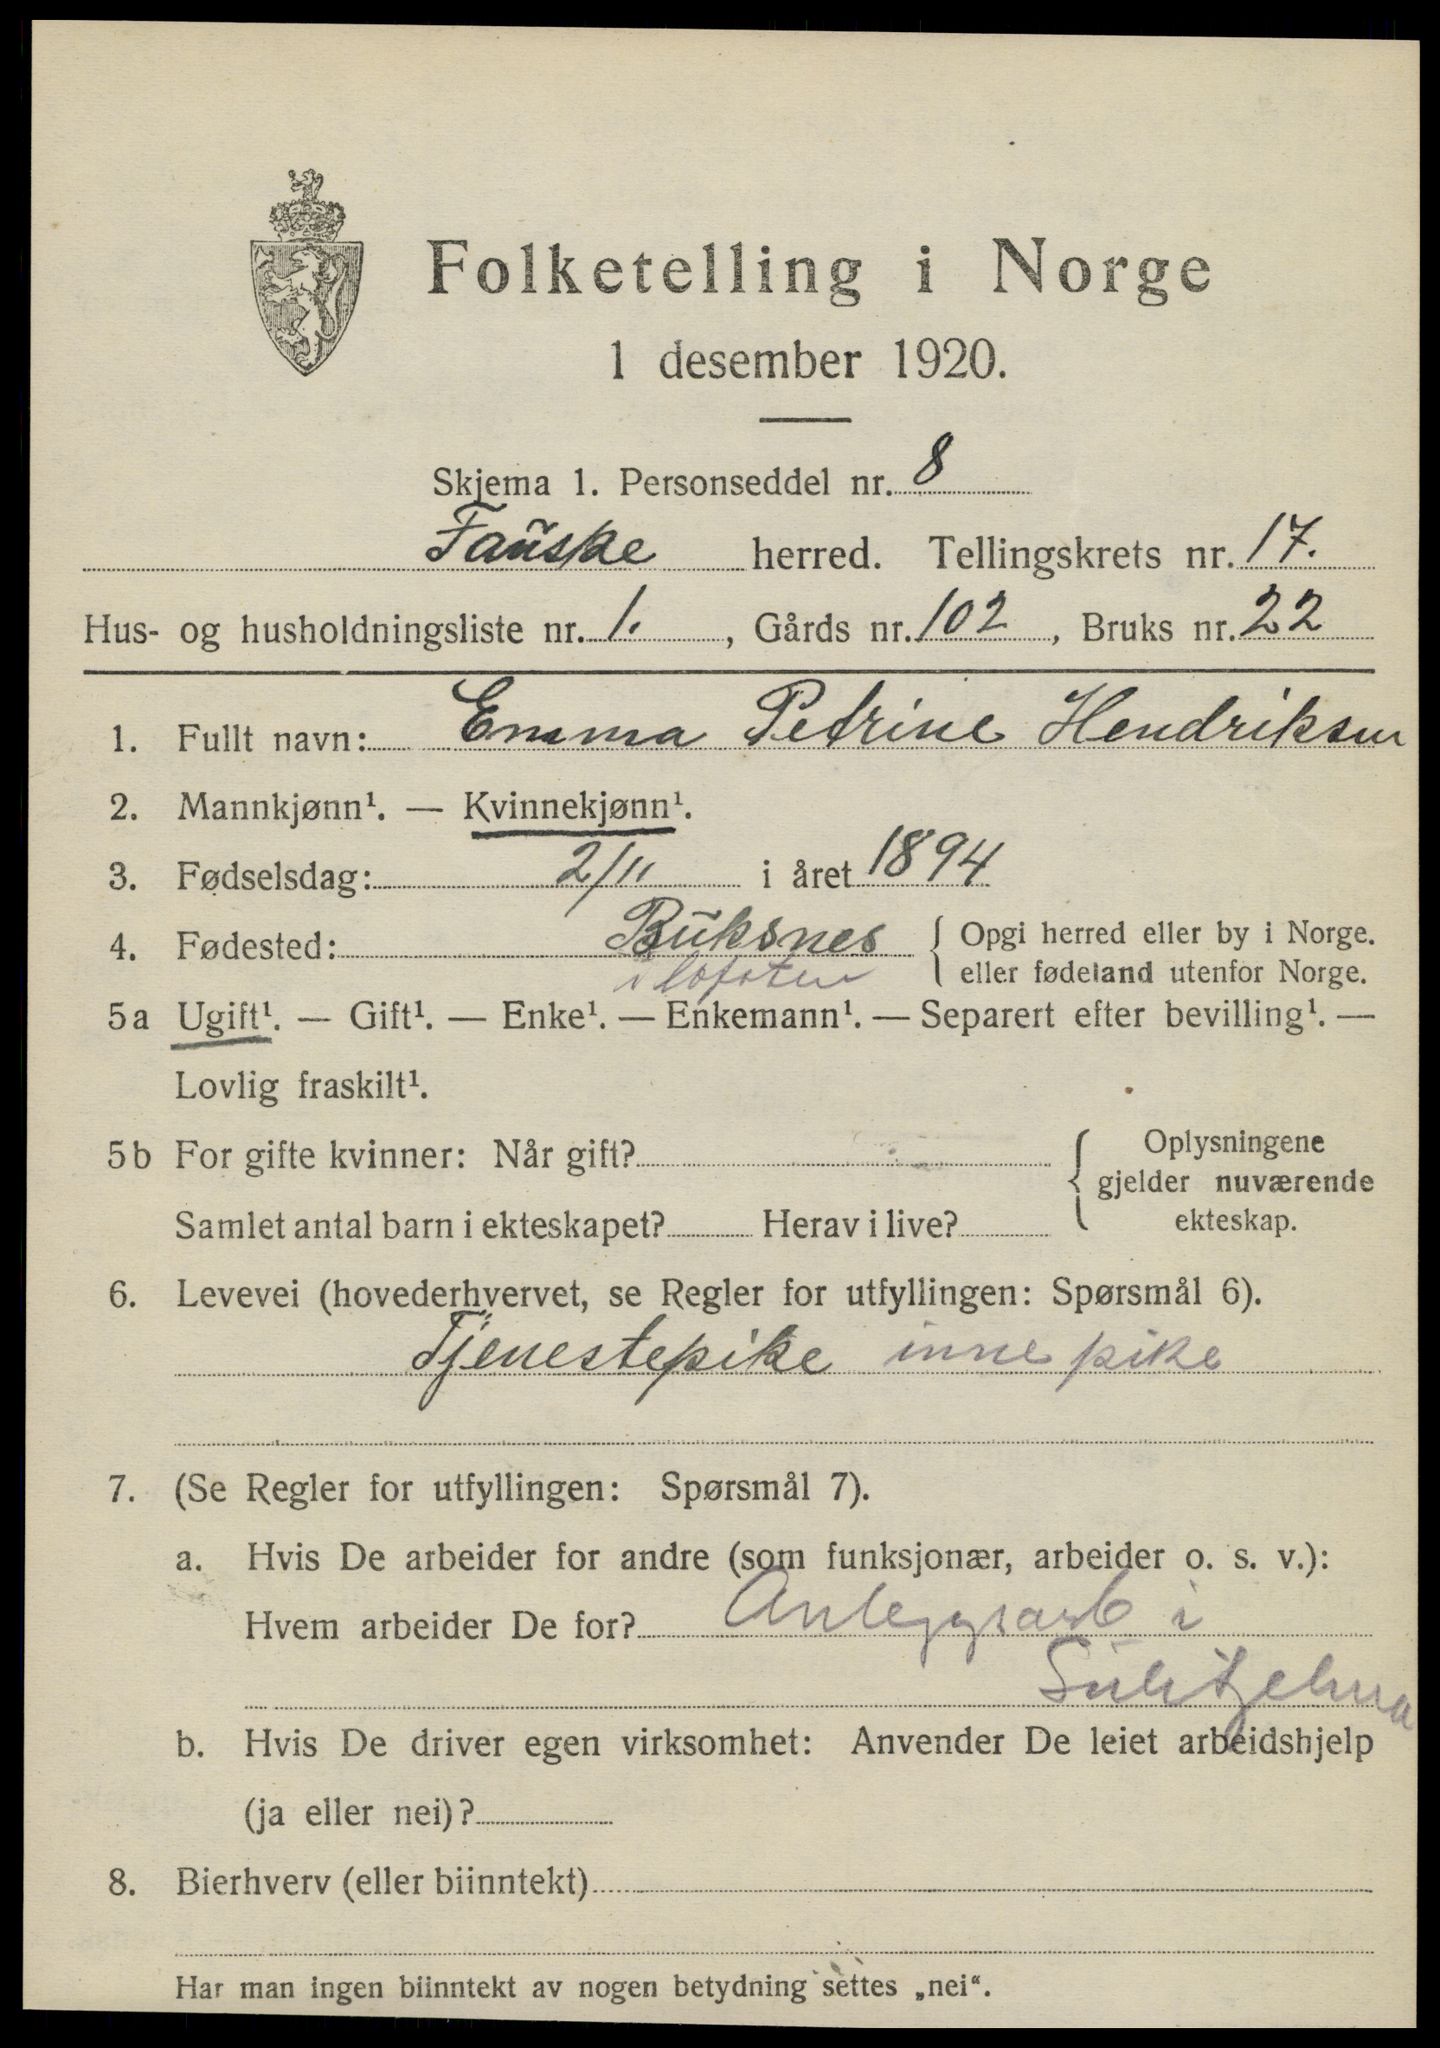 Folketelling i Norge
1 desember 1920.
Skjema 1. Personseddel nr. 8
Fauske herred. Tellingskrets nr. 17.
Hus- og husholdningsliste nr. 1. , Gårds nr. 102 , Bruks nr. 22
1. Fullt navn: Emma Petrine Hendriksen
2. Mannkjønn¹. — Kvinnekjønn¹.
3. Fødselsdag: 2/11 i året 1894
4. Fødested: Buksnes { Opgi herred eller by i Norge.
i Lofoten eller fødeland utenfor Norge.
5a Ugift¹. — Gift¹. — Enke¹. — Enkemann¹. — Separert efter bevilling¹. —
Lovlig fraskilt¹.
5b For gifte kvinner: Når gift? { Oplysningene
gjelder nuværende
Samlet antal barn i ekteskapet? Herav i live? ekteskap.
6. Levevei (hovederhvervet, se Regler for utfyllingen: Spørsmål 6).
Tjenestepike inne pike
7. (Se Regler for utfyllingen: Spørsmål 7).
a. Hvis De arbeider for andre (som funksjonær, arbeider o. s. v.):
Hvem arbeider De for? Anleggsarb i
Sulitjelma
b. Hvis De driver egen virksomhet: Anvender De leiet arbeidshjelp
(ja eller nei)?
8. Bierhverv (eller biinntekt)
Har man ingen biinntekt av nogen betydning settes „nei“.